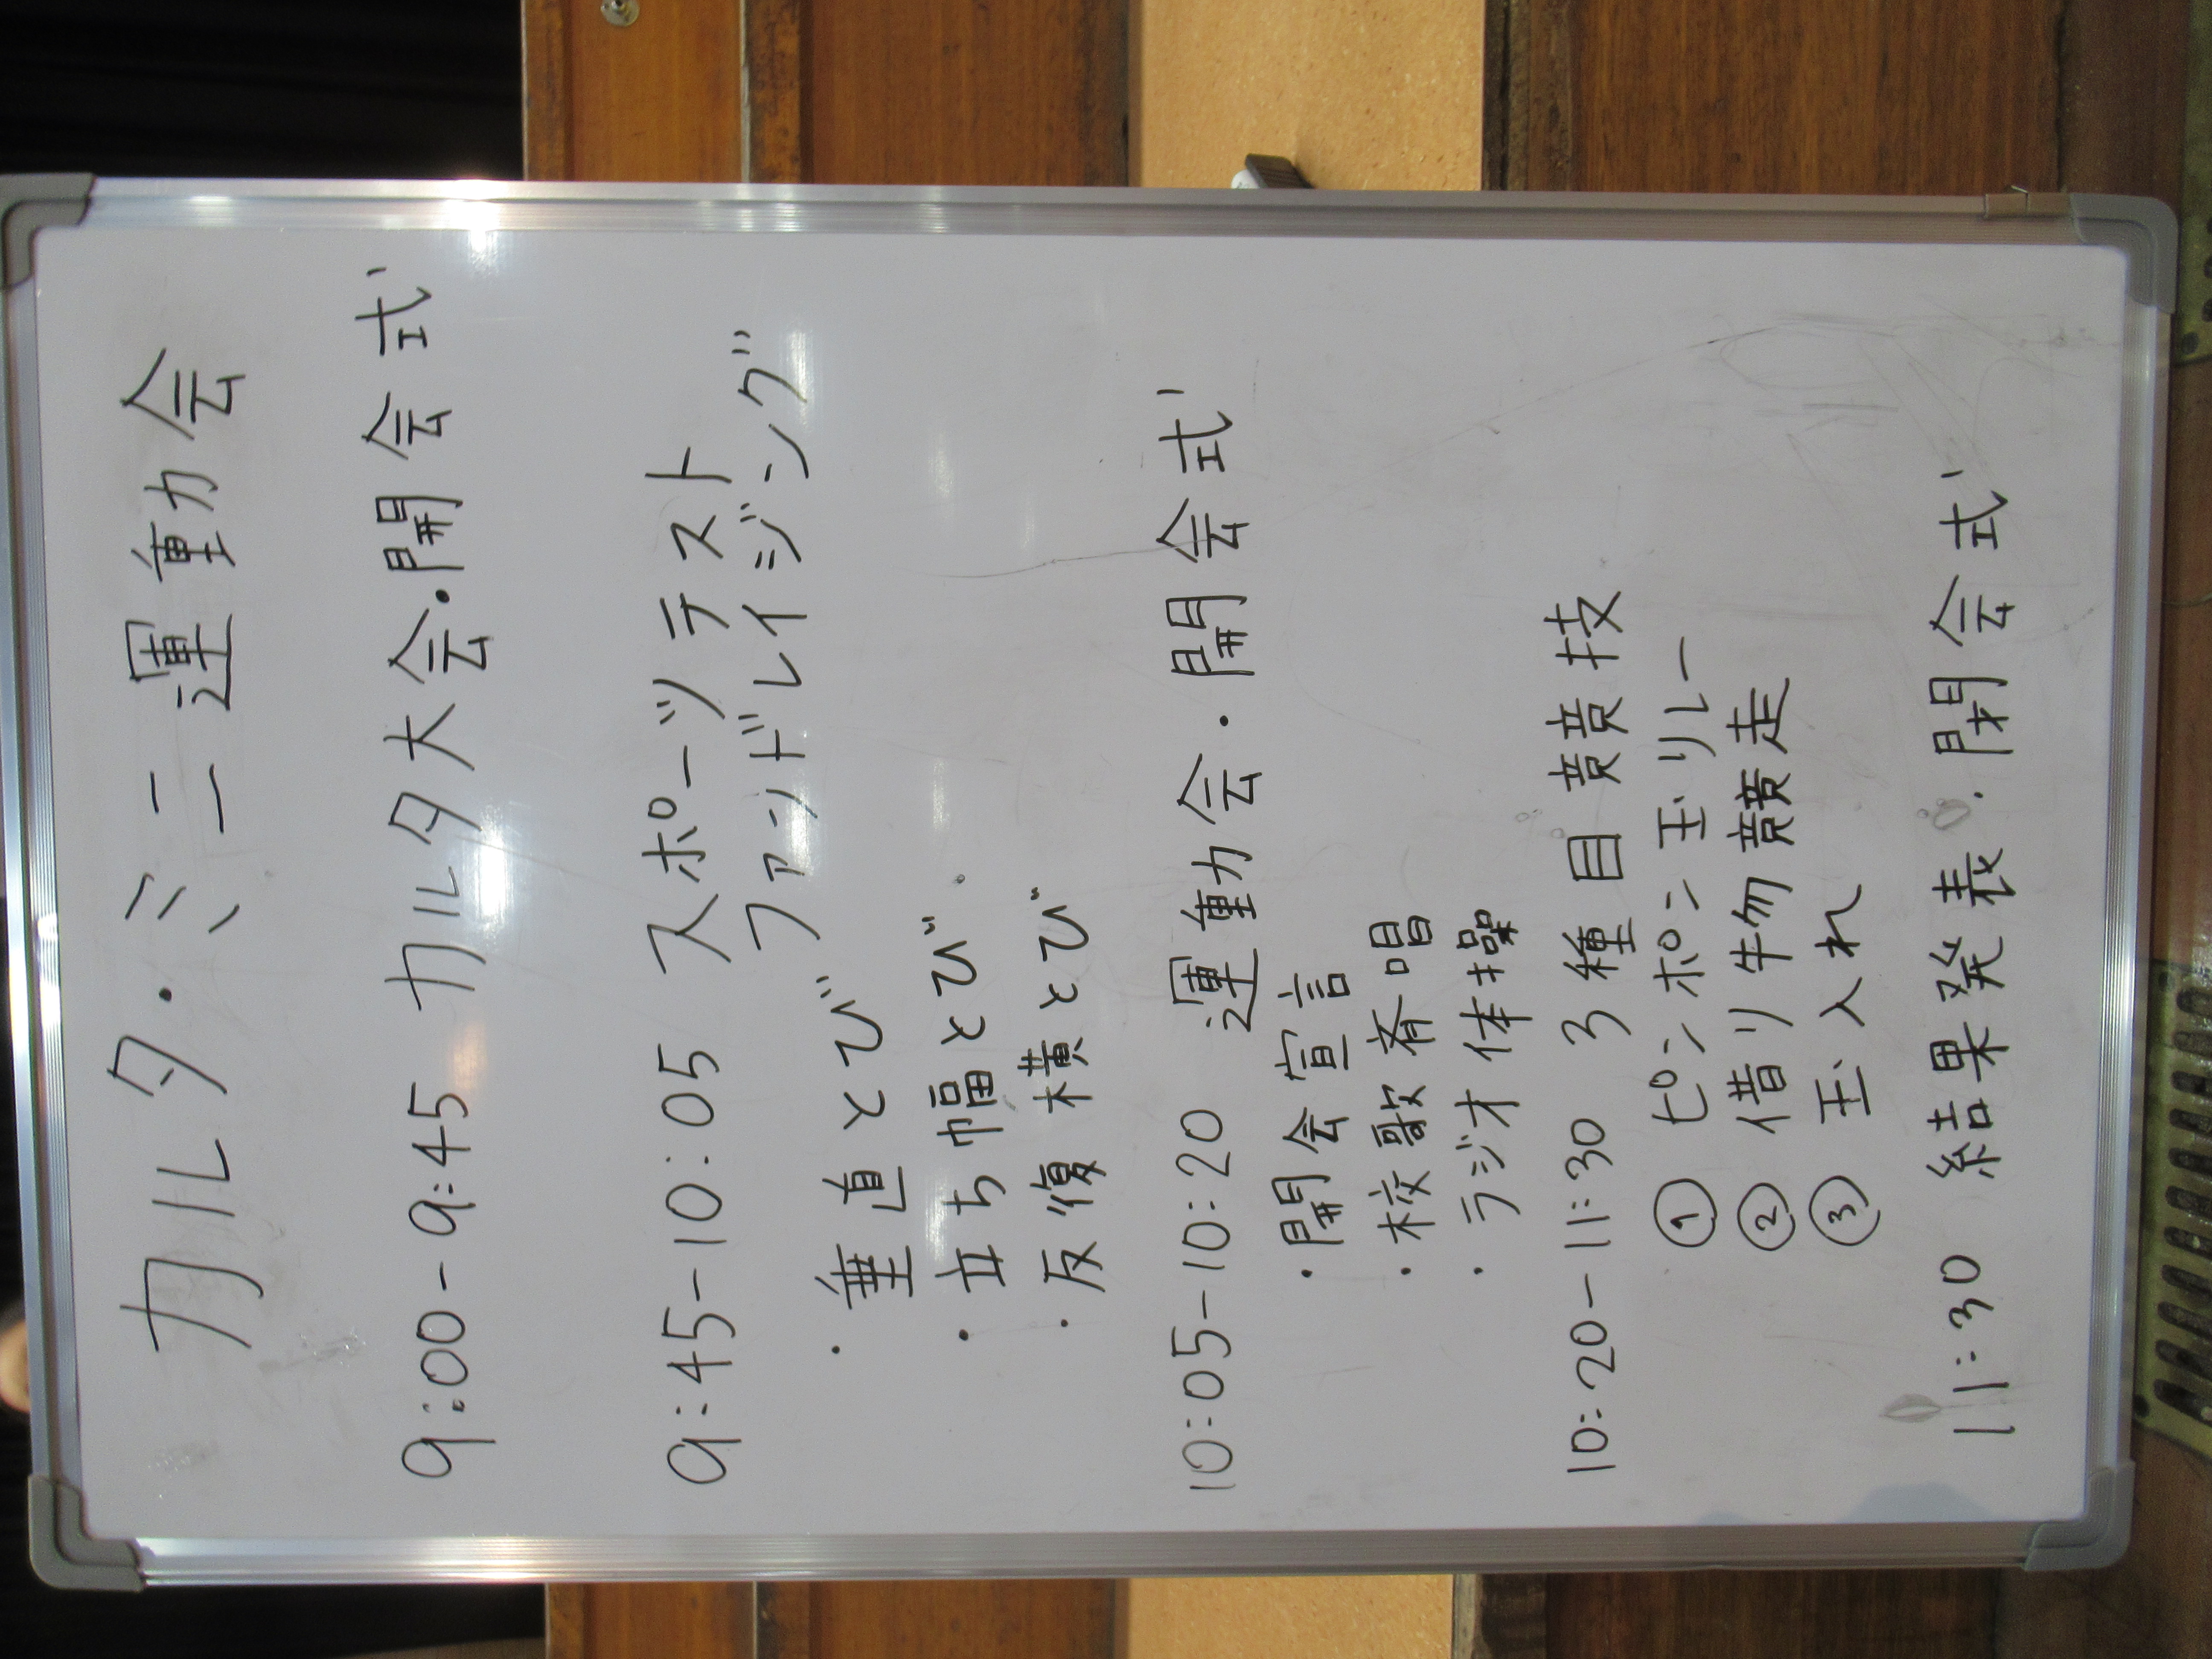 カルタ・ミニ運動会
9:00-9:45 カルタ大会・開会式
9:45-10:05 スポーツテスト
ファンドレイジング
・垂直とび
・立ち幅とび
・反復横とび
10:05-10:20 運動会・開会式
・開会宣言
・校歌斉唱
・ラジオ体操
10:20-11:30 3種目競技
① ピンポン玉リレー
② 借り物競走
③ 玉入れ
11:30 結果発表・閉会式